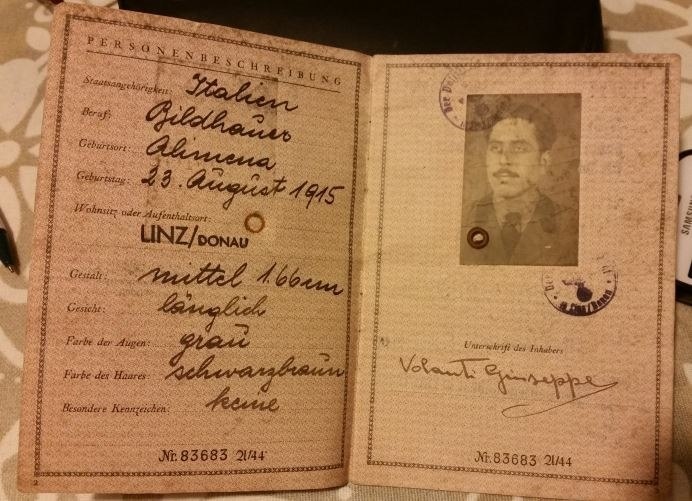 PERSONENBESCHREIBUNG
Staatsangehörigkeit: Italien
Beruf: Bildhauer
Geburtsort: Alimena
Geburtstag: 23. August 1915
Wohnsitz oder Aufenthaltsort:
LINZ/DONAU
Gestalt: mittel 1.66 cm
Gesicht: länglich
Farbe der Augen: grau
Farbe des Haares: schwarzbraun
Besondere Kennzeichen: keine
Nr. 83683 21/44
2
Der
Der
in Linz/Donau
Unterschrift des Inhabers
Volanti Giuseppe
Nr. 83683 21/44
SAMSUNG